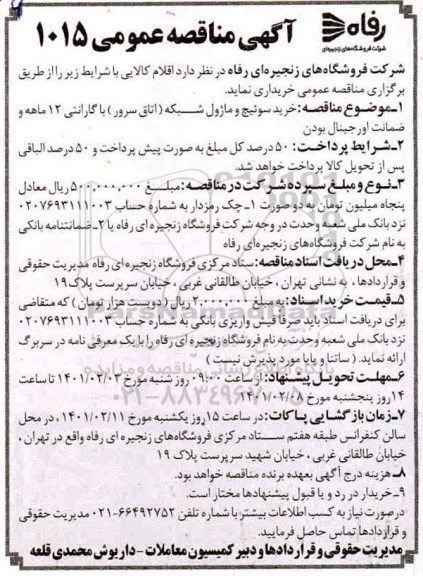 رفاه
شرکت فروشگاه‌های زنجیره‌ای
آگهی مناقصه عمومی ۱۰۱۵
شرکت فروشگاه‌های زنجیره‌ای رفاه در نظر دارد اقلام کالایی با شرایط زیر را از طریق
برگزاری مناقصه عمومی خریداری نماید.
۱-موضوع مناقصه: خرید سوئیچ و ماژول شبکه (اتاق سرور) با گارانتی ۱۲ ماهه و
ضمانت اورجینال بودن
۲-شرایط پرداخت: ۵۰ درصد کل مبلغ به صورت پیش پرداخت و ۵۰ درصد الباقی
پس از تحویل کالا پرداخت خواهد شد.
۳-نوع و مبلغ سپرده شرکت در مناقصه: مبلغ ۵۰۰,۰۰۰,۰۰۰ ریال معادل
پنجاه میلیون تومان به دو صورت ۱-چک رمزدار به شماره حساب ۰۲۰۷۶۹۳۱۱۱۰۰۳
نزد بانک ملی شعبه وحدت در وجه شرکت فروشگاه زنجیره ای رفاه یا ۲-ضمانتنامه بانکی
به نام شرکت فروشگاه‌های زنجیره‌ای رفاه
۴-محل دریافت اسناد مناقصه: ستاد مرکزی فروشگاه زنجیره ای رفاه مدیریت حقوقی
و قراردادها، به نشانی تهران ، خیابان طالقانی غربی ، خیابان سرپرست پلاک ۱۹
۵-قیمت خرید اسناد: به مبلغ ۲,۰۰۰,۰۰۰ ریال ( دویست هزار تومان ) که متقاضی
برای دریافت اسناد باید صرفا فیش واریزی بانکی به شماره حساب ۰۲۰۷۶۹۳۱۱۱۰۰۳
نزد بانک ملی شعبه وحدت به نام فروشگاه زنجیره ای رفاه را با یک معرفی نامه در سربرگ
ارائه نماید. ( ساتنا و پایا مورد پذیرش نیست )
۶-مهلت تحویل پیشنهاد: از ساعت ۰۹:۰۰ روز شنبه مورخ ۱۴۰۱/۰۲/۰۳ تا ساعت
۱۴ روز پنجشنبه مورخ ۱۴۰۱/۰۲/۰۸
۷-زمان بازگشایی پاکات: در ساعت ۱۵ روز یکشنبه مورخ ۱۴۰۱/۰۲/۱۱، در محل
سالن کنفرانس طبقه هفتم ستاد مرکزی فروشگاه‌های زنجیره ای رفاه واقع در تهران ،
خیابان طالقانی غربی ، خیابان شهید سرپرست پلاک ۱۹
۸-هزینه درج آگهی بعهده برنده مناقصه خواهد بود.
۹-خریدار در رد و یا قبول پیشنهادها مختار است.
درصورت نیاز به کسب اطلاعات بیشتر با شماره تلفن ۶۶۴۹۲۷۵۲-۰۲۱ مدیریت حقوقی
و قراردادها تماس حاصل فرمایید.
مدیریت حقوقی و قراردادها و دبیر کمیسیون معاملات - داریوش محمدی قلعه
ParsNamadData
پایگاه اطلاع رسانی مناقصه و مزایده